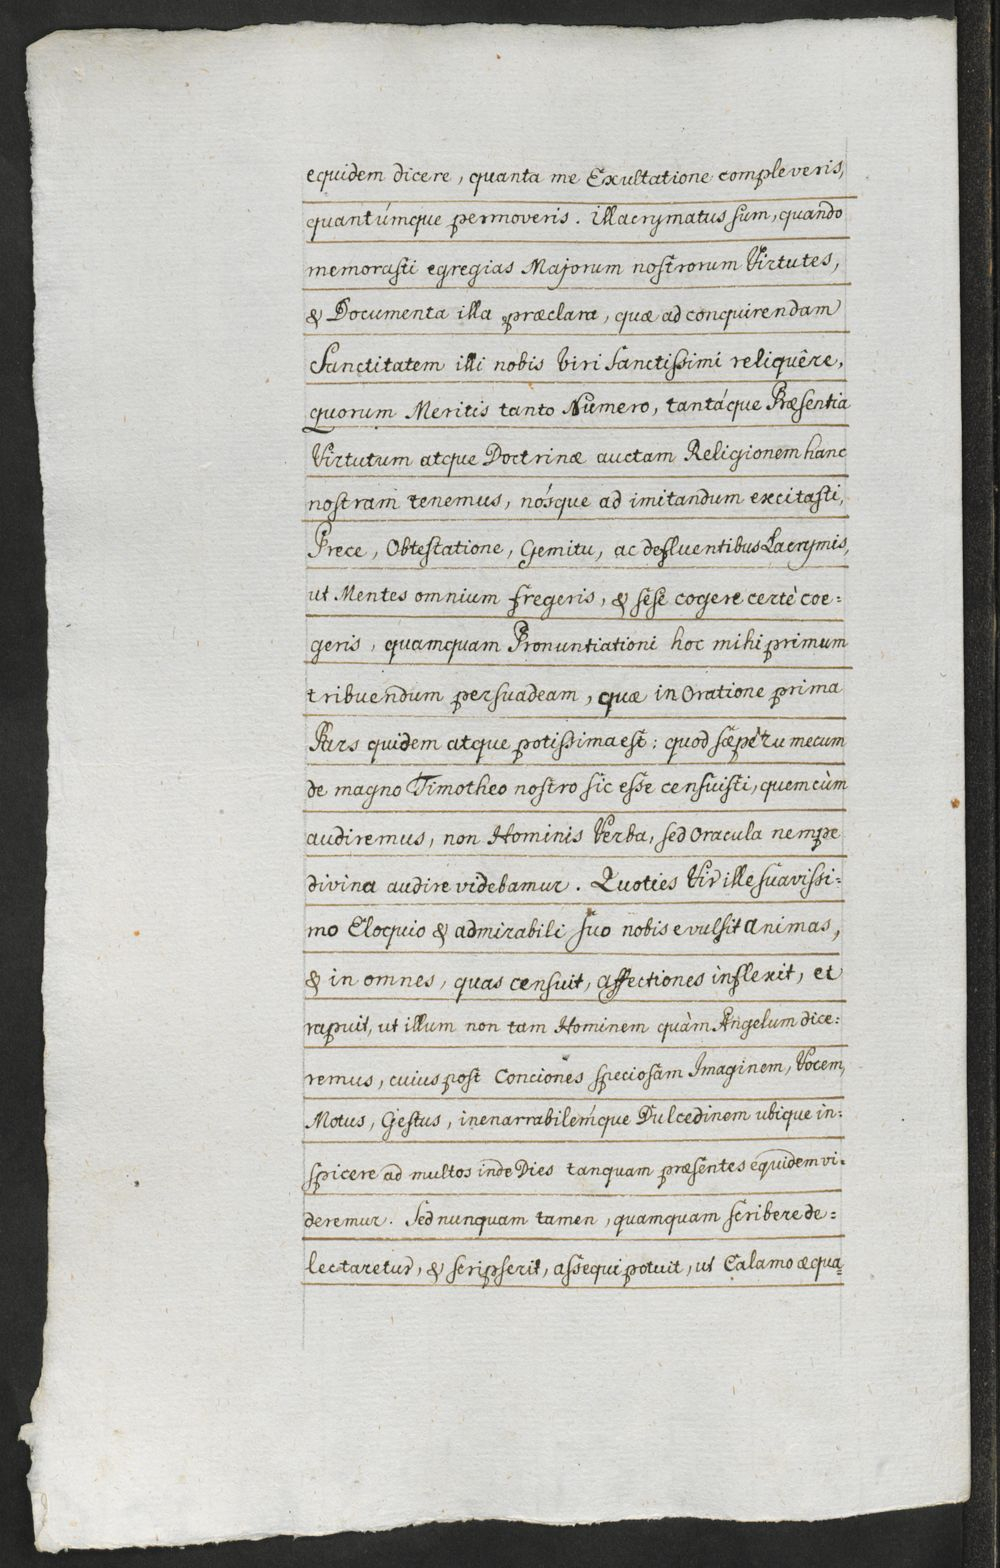 equidem dicere, quanta me Exultatione compleveris,
quantúmque permoveris. illacrymatus sum, quando
memorasti egregias Majorum nostrorum Virtutes,
& Documenta illa præclara, quæ ad conquirendam
Sanctitatem illi nobis Viri Sanctissimi reliquêre,
quorum Meritis tanto Numero, tantáque Præsentia
Virtutum atque Doctrinæ auctam Religionem hanc
nostram tenemus, nósque ad imitandum excitasti,
Prece, Obtestatione, Gemitu, ac defluentibus Lacrymis,
ut Mentes omnium fregeris, & sese cogere certè coe=
geris, quamquam Pronuntiationi hoc mihi primum
tribuendum persuadeam, quæ in Oratione prima
Pars quidem atque potissima est: quod sæpè tu mecum
de magno Timotheo nostro sic esse censuisti, quem cùm
audiremus, non Hominis Verba, sed Oracula nempe
divina audire videbamur. Quoties Vir ille suavissi=
mo Eloquio & admirabili suo nobis evulsit animas,
& in omnes, quas censuit, affectiones inflexit, et
rapuit, ut illum non tam Hominem quàm Angelum dice=
remus, cuius post Conciones speciosam Imaginem, Vocem,
Motus, Gestus, inenarrabilémque Dulcedinem ubique in=
spicere ad multos inde Dies tanquam præsentes equidem vi=
deremur. Sed nunquam tamen, quamquam scribere de=
lectaretur, & scripserit, assequi potuit, ut Calamo æqua=